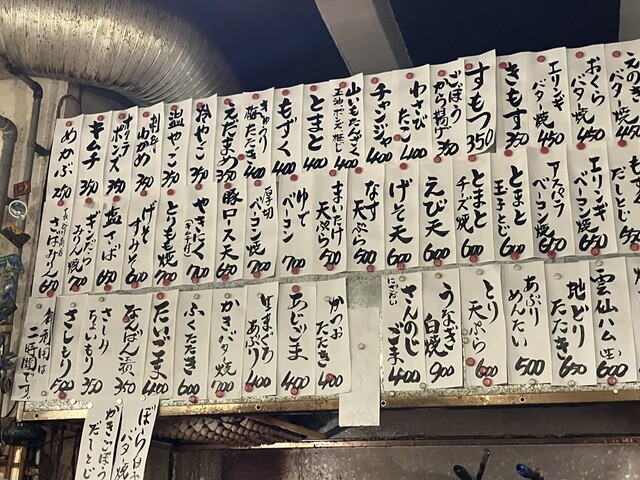 めかぶ 350
キムチ 350
オクラポンズ 350
温やっこ 350
冷やっこ 350
えだまめ 350
きゅうり梅たたき 400
もずく 400
とまと 400
山いもたんざく 400
チャンジャ 400
わさびたこ 400
ごぼうから揚げ 350
すもつ 350
きもす 350
エリンギバター焼 450
おくらバター焼 450
さばみりん 650
ギンダラみりん焼 700
塩さば 650
げそすみそ 600
とりもも焼 700
やきにく 700
豚ロース天 650
厚切ベーコン焼 700
ゆでベーコン 700
まいたけ天ぷら 500
なす天ぷら 500
げそ天 600
えび天 600
とまとチーズ焼 600
とまと玉子とじ 600
アスパラベーコン焼 650
エリンギベーコン焼 650
だしとじ 650
御利用は二時間です。
さしもり 500
さしみちょいもり 350
なんばん漬 350
たいごま 400
ふくたたき 600
かきバター焼 700
生まぐろあぶり 400
あじごま 400
かつおたたき 400
さんのじごま 400
うなぎ白焼 900
とり天ぷら 600
あぶりめんたい 500
地どりたたき 600
雲仙ハム(生) 600
かきごぼうだしとじ
バター焼